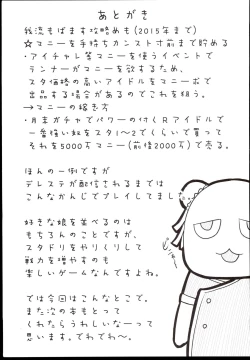 あとがき
我流もばます攻略めも(2015年まで)
☆マニーを手持ちカンスト寸前まで貯める
・アイチャレ等マニーを使うイベントで
ランナーがマニーを欲するため、
スタ価格の高いアイドルをマニーボで
出品する場合があるのでこれを狙う。
→マニーの稼ぎ方
・月末ガチャでパワーの付くRアイドルで
一番強い奴をスタ1～2でくらいで買って
それを5000万マニー(前後2000万)で売る。
ほんの一例ですが
デレステが配信されるまでは
こんなかんじでプレイしてました。
好きな娘を並べるのは
もちろんのことですが、
スタドリをやりくりして
戦力を増やすのも
楽しいゲームなんですよね。
では今回はこんなとこで。
また次の本もとって
くれたらうれしいなーって
思います。でわでわ～。